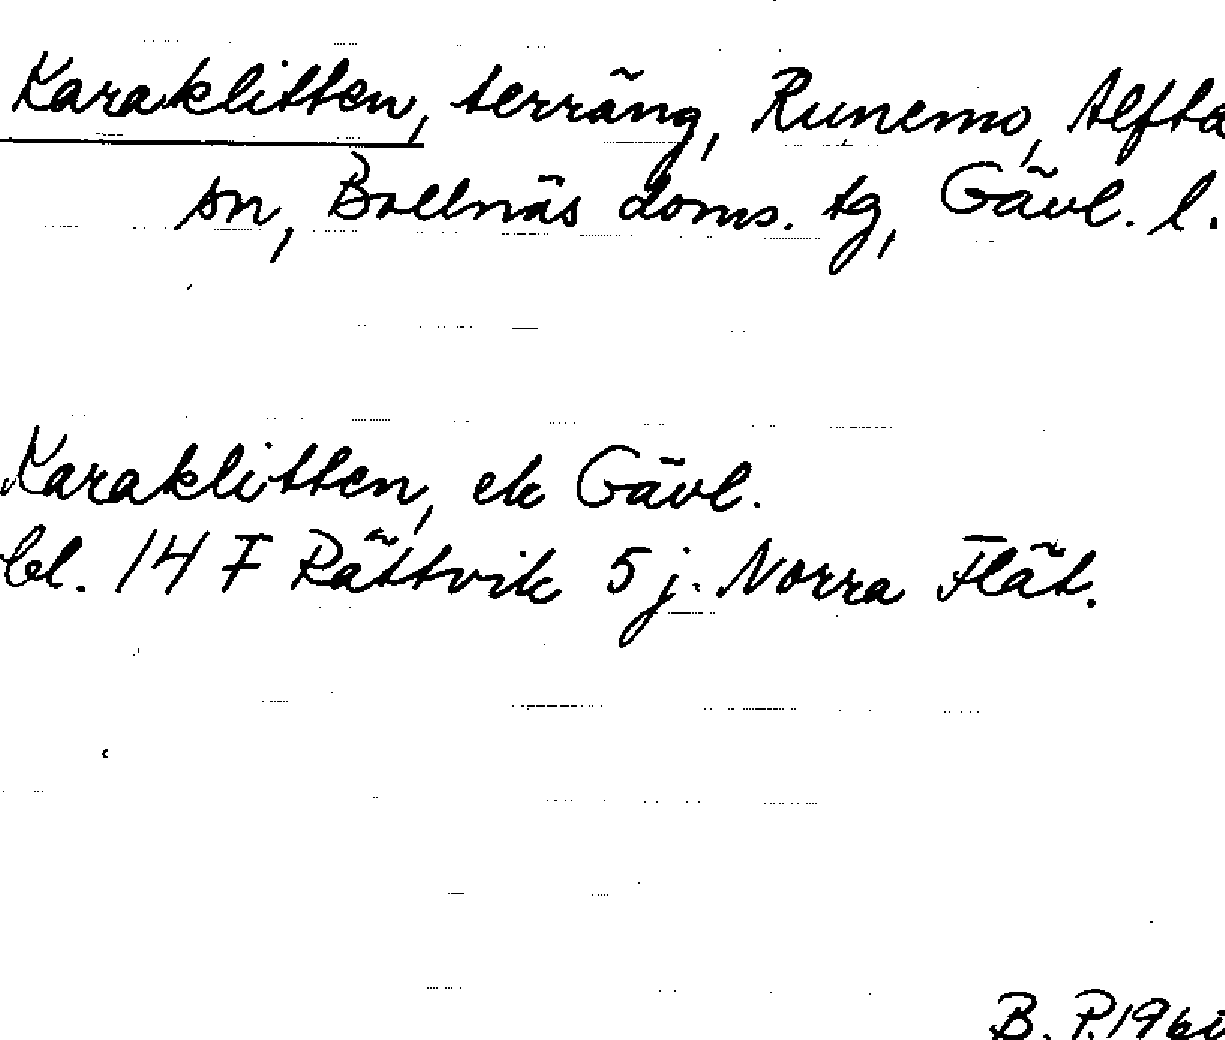 Karaklitten, terräng, Runemo, Alfta
sn, Bollnäs doms. tg, Gävl. l.
Karaklitten, ek Gävl.
bl. 14 F Rättvik 5 j. Norra Flät.
B. P.